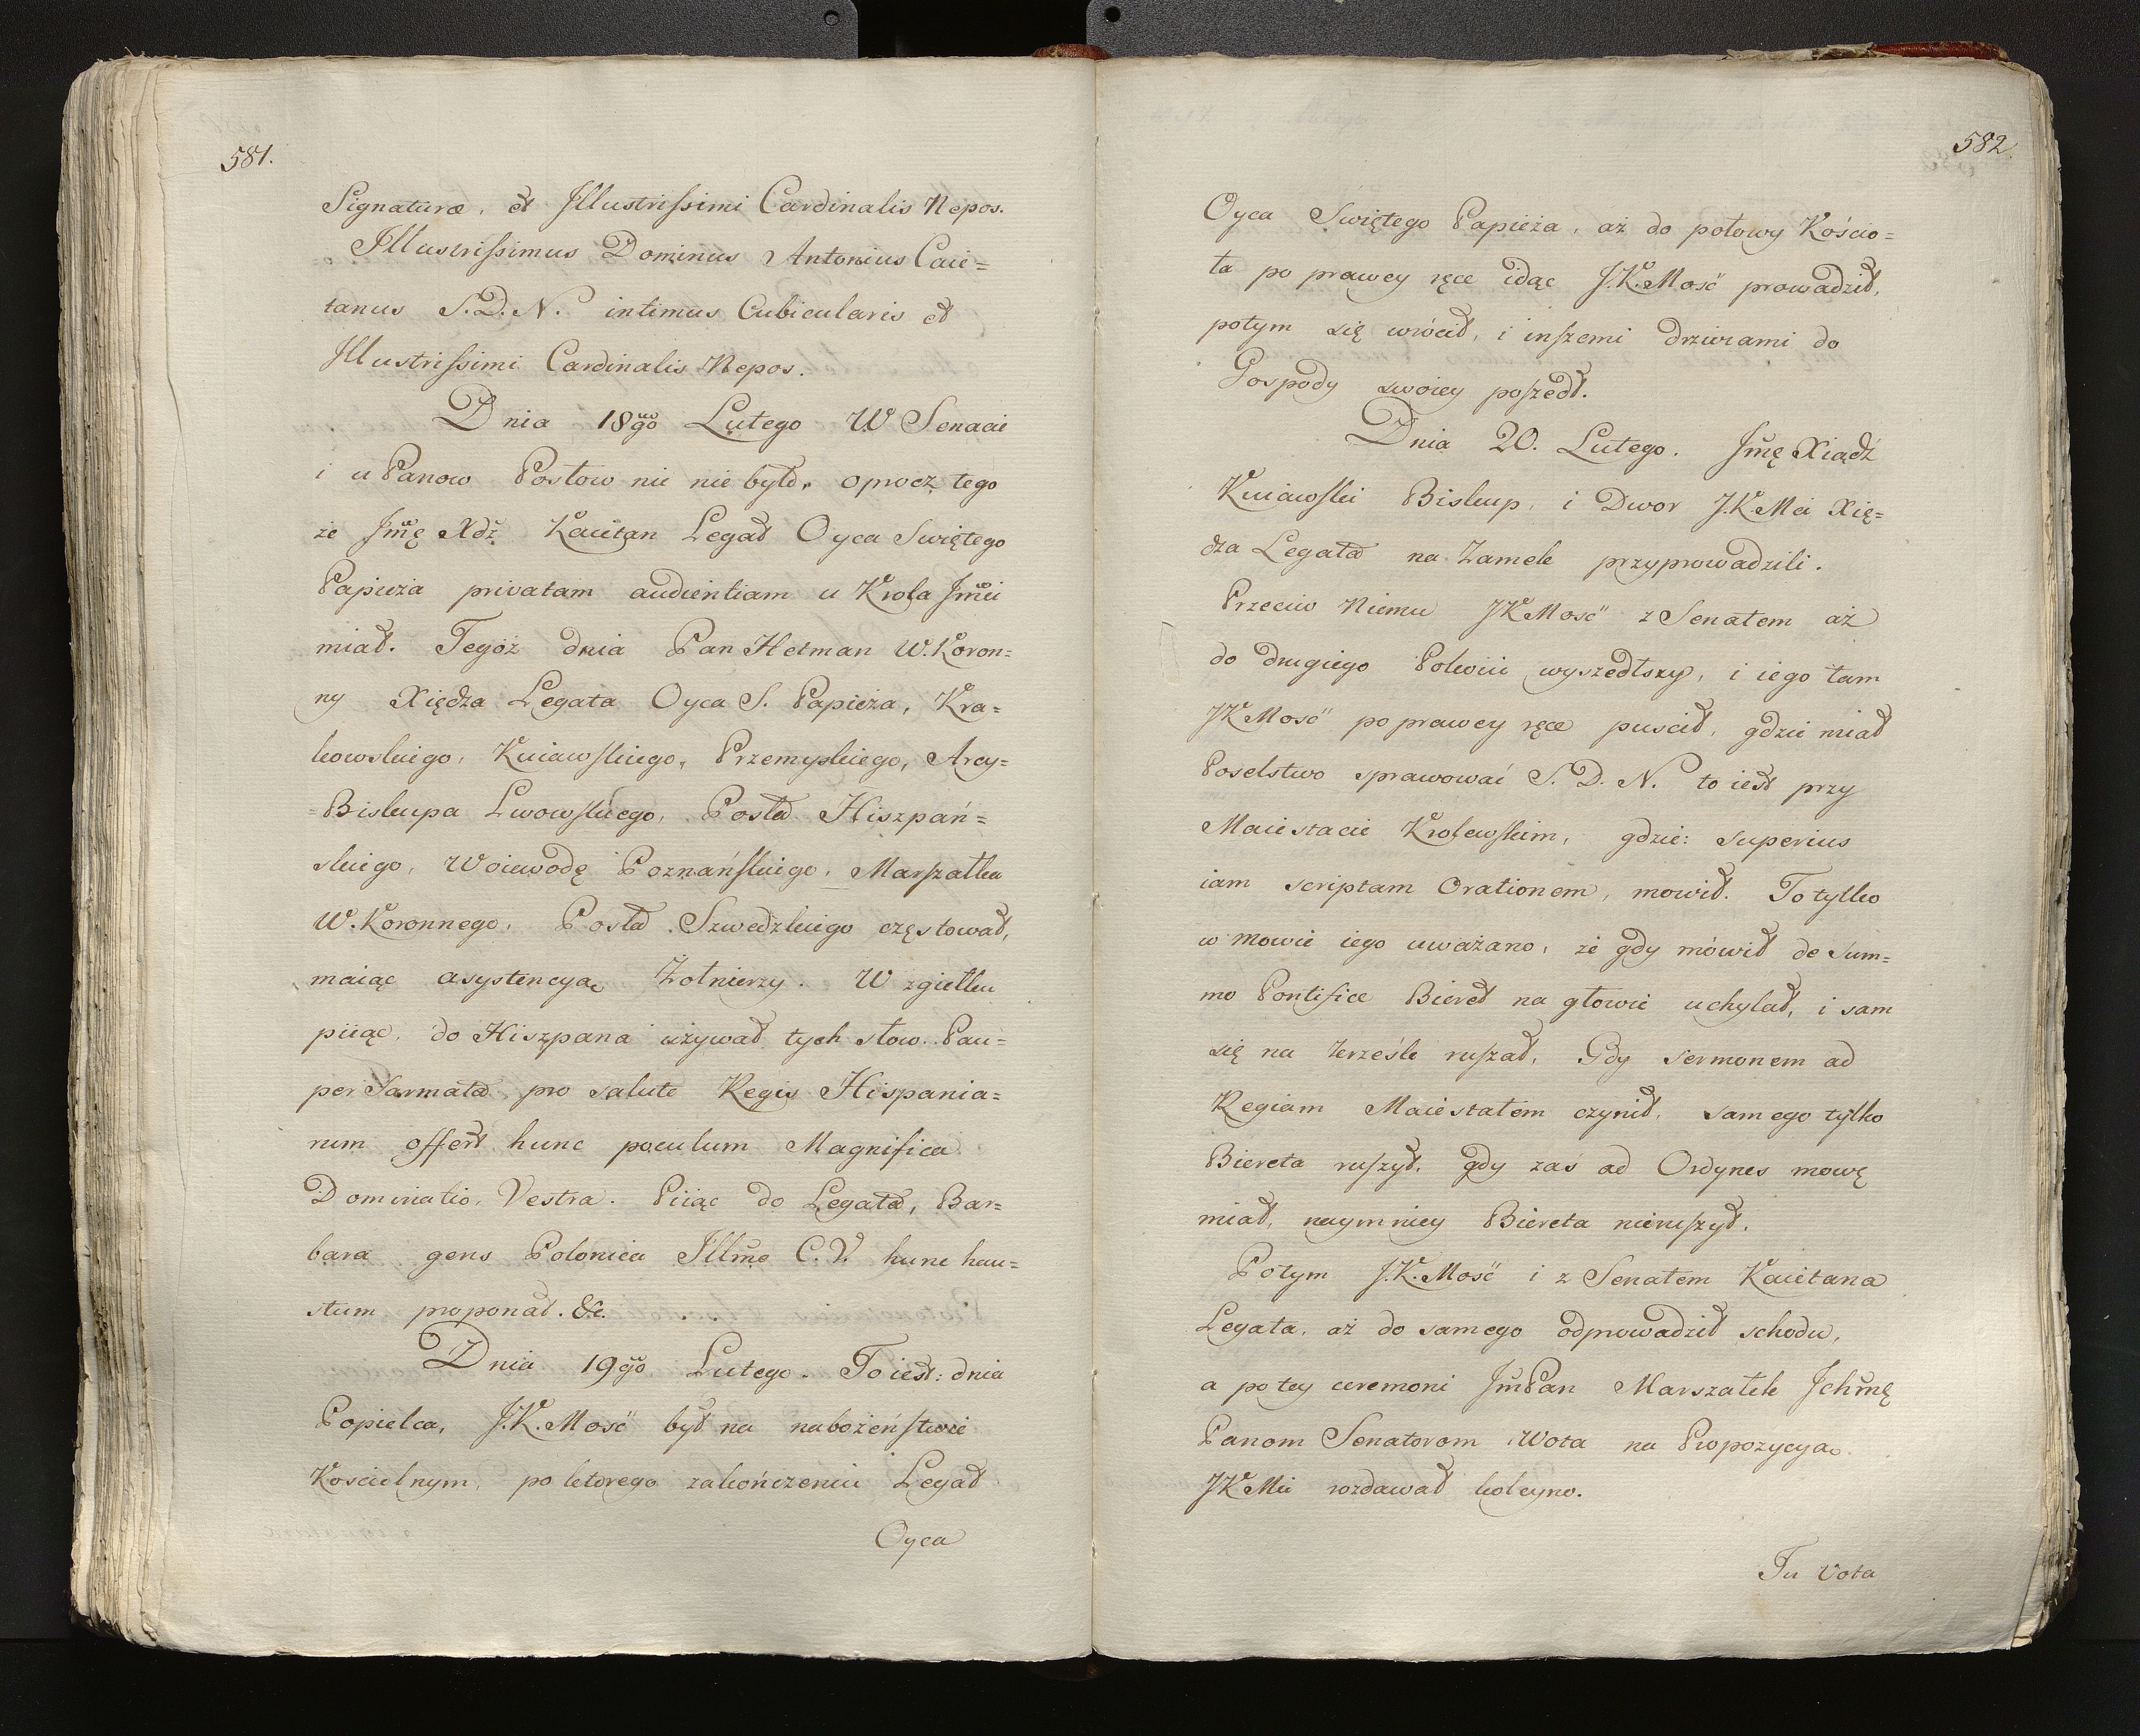 581.
Signaturæ, et Illustrissimi Cardinalis Nepos.
Illustrissimus Dominus Antonius Caie=
tanus S.D.N. intimus Cubicularis et
Illustrissimi Cardinalis Nepos.
Dnia 18go Lutego W Senacie
i u Panow Posłow nic nie było, oprocz tego
że Jmę Xdz Kaietan Legat Oyca Swiętego
Papieża privatam audientiam u Krola Jmci
miał. Tegoż dnia Pan Hetman W. Koron=
ny Xiędza Legata Oyca S. Papieża, Kra=
kowskiego, Kuiawskiego, Przemyskiego, Arcy=
=Biskupa Lwowskiego, Posła Hiszpań=
skiego, Woiewodę Poznańskiego, Marszałka
W. Koronnego, Posła Szwedzkiego częstował,
maiąc asystencyą Żołnierzy. W zgiełku
piiąc, do Hiszpana używał tych słow. Pau=
per Sarmata pro salute Regis Hispania=
rum offert hunc poculum Magnifica
Dominatio Vestra. Piiąc do Legata, Bar=
bara gens Polonica Illmæ C.V. hunc hau=
stum proponat. &c.
Dnia 19go Lutego. To iest: dnia
Popielca, J.K.Mość był na nabożeństwie
Koscielnym, po ktorego zakończeniu Legat
Oyca
582.
Oyca Swiętego Papieża, aż do połowy Kościo=
ła po prawey ręce idąc J.K.Mość prowadził,
potym się wrócił, i inszemi drzwiami do
Gospody swoiey poszedł.
Dnia 20. Lutego. Jmę Xiądz
Kuiawski Biskup, i Dwor J.K.Mci Xię=
dza Legata na Zamek przyprowadzili.
Przeciw Niemu JKMość z Senatem aż
do drugiego Pokoiu wyszedłszy, i iego tam
JKMość po prawey ręce puscił, gdzie miał
Poselstwo sprawować S.D.N. to iest przy
Maiestacie Krolewskim, gdzie: superius
iam scriptam Orationem, mowił. To tylko
w mowie iego uważano, że gdy mówił de Sum=
mo Pontifice Bieret na głowie uchylał, i sam
się na krześle ruszał, Gdy Sermonem ad
Regiam Maiestatem czynił, samego tylko
Biereta ruszył, gdy zaś ad Ordynes mowę
miał, naymniey Biereta nieruszył.
Potym J.K.Mość i z Senatem Kaietana
Legata, aż do samego odprowadził schodu,
a po tey ceremoni JmPan Marszałek Ichmę
Panom Senatorom Wota na Propozycyą
JKMci rozdawał koleyno.
Tu Vota